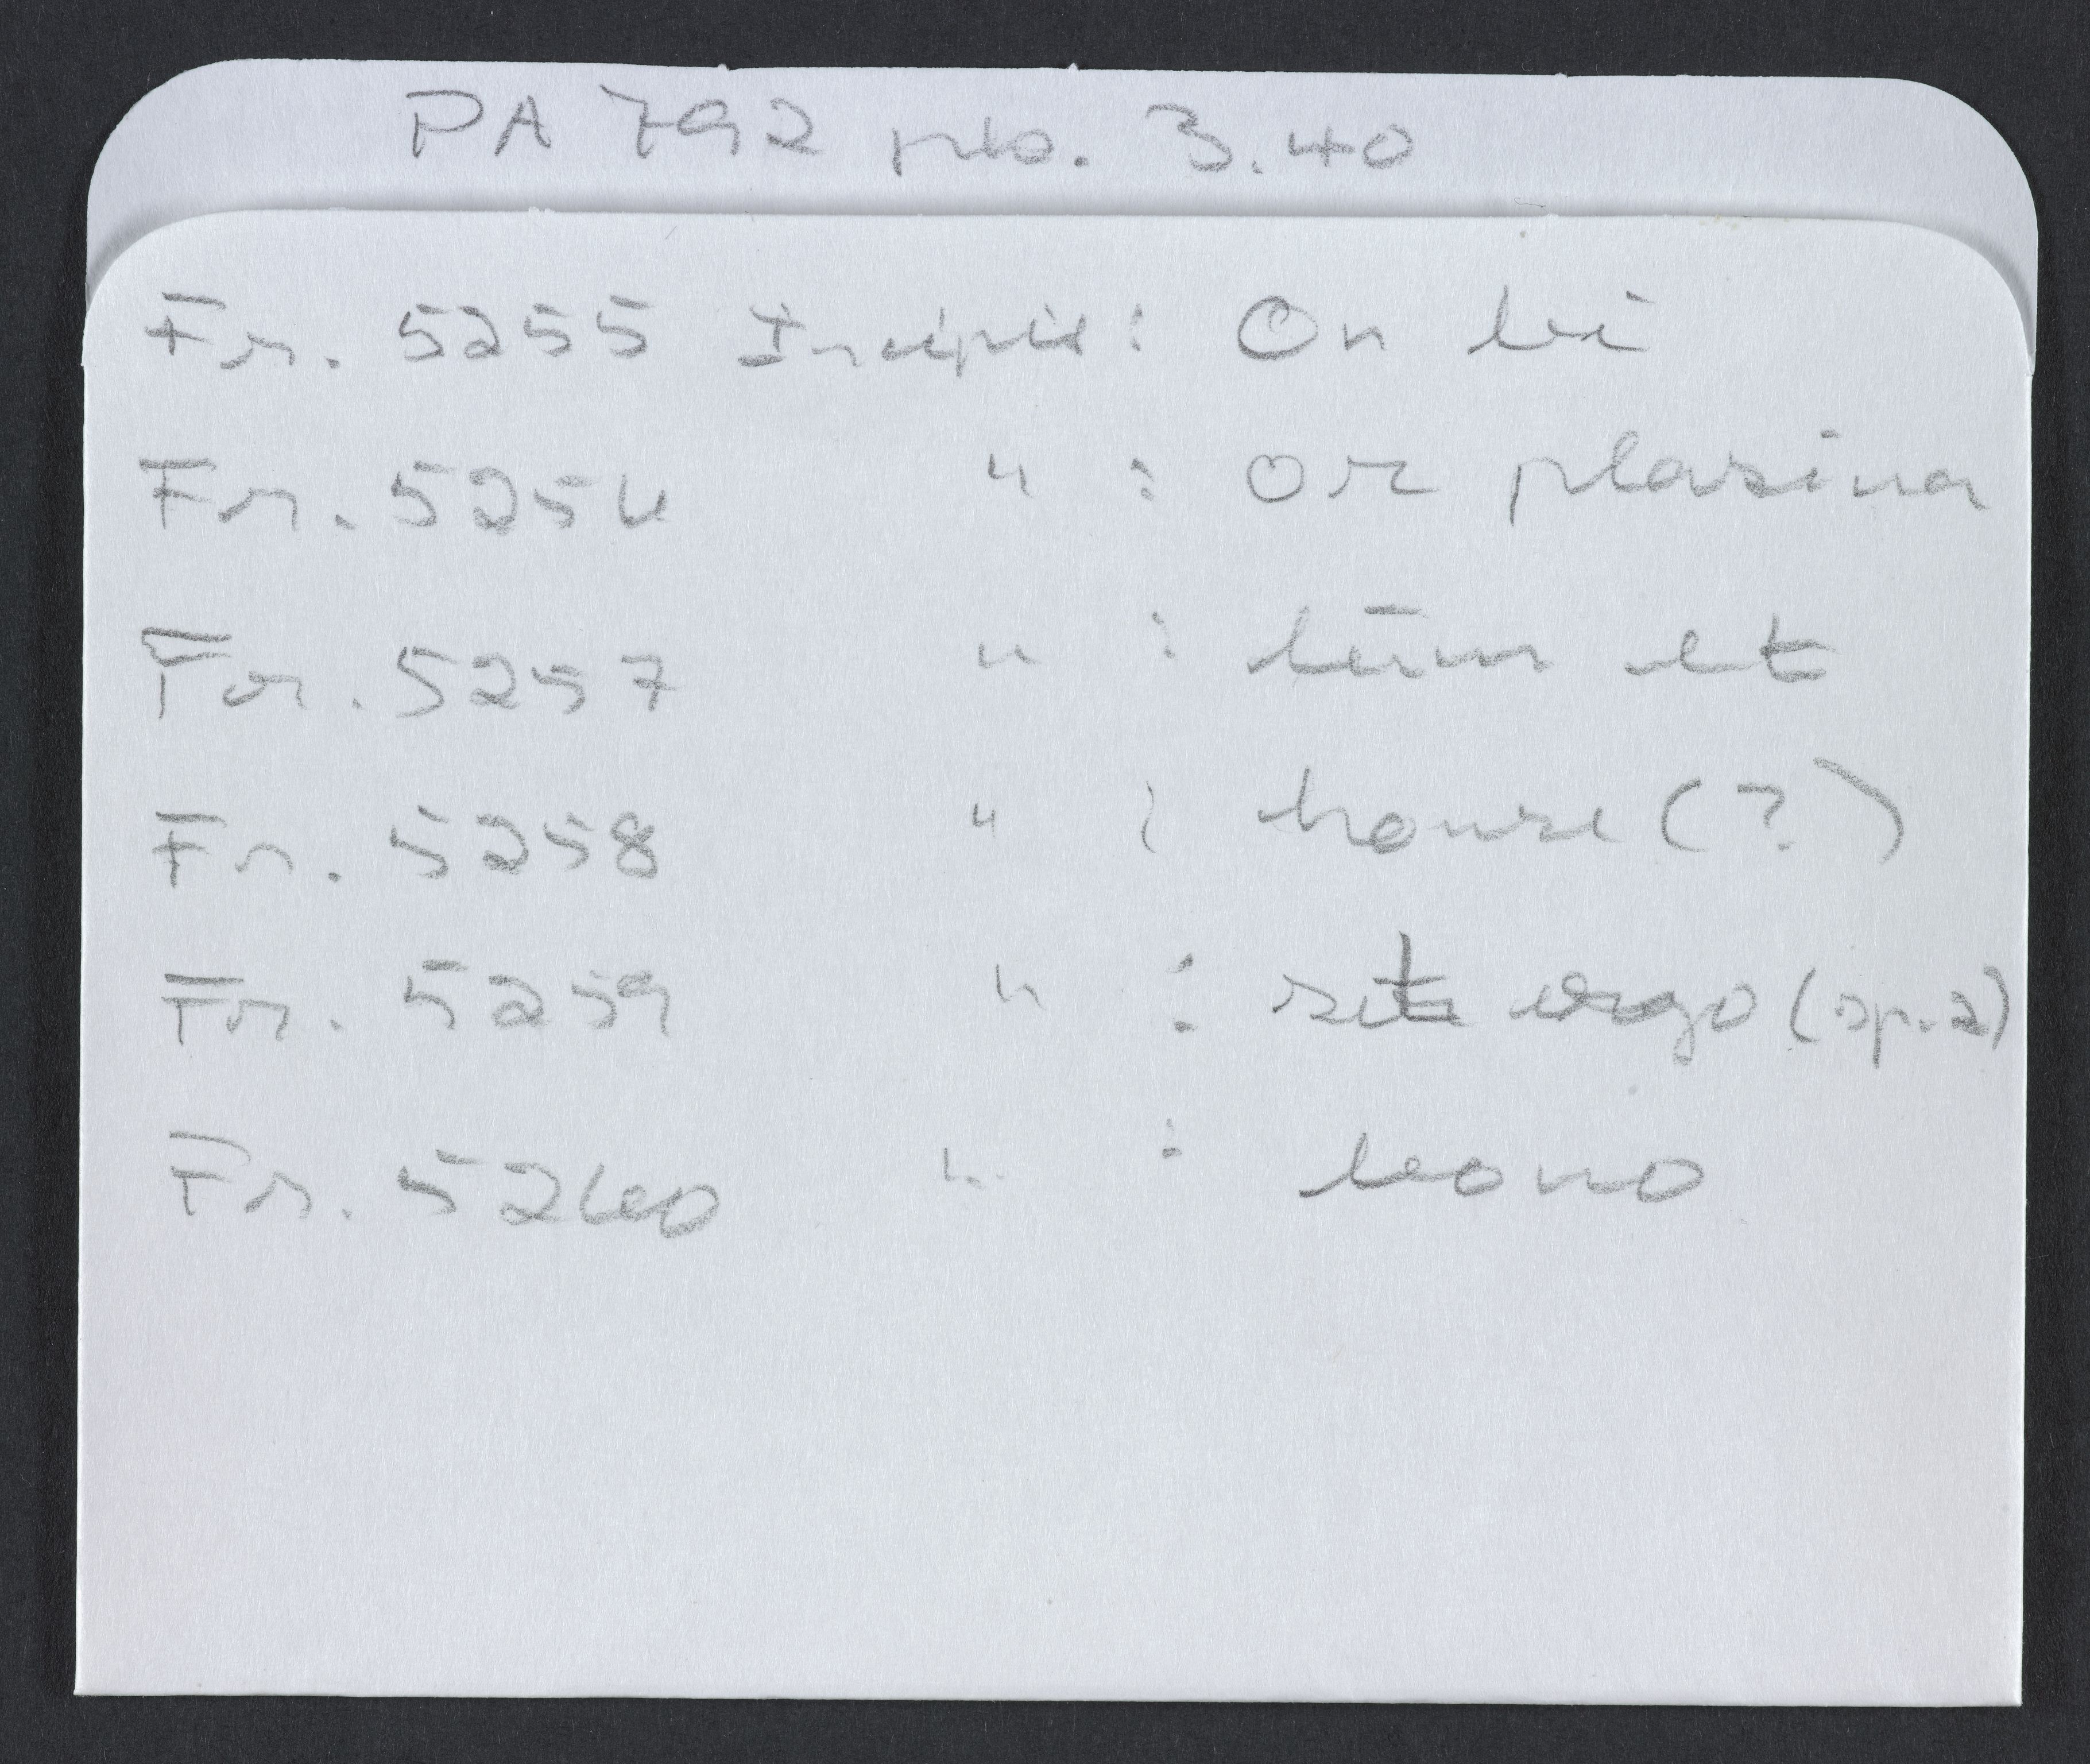 PA 792 pls. 3.40
Fr. 5255 Incipit: On lei
Fr. 5256 " : or plasina
Fr. 5257 " : et
Fr. 5258 " : house (?)
Fr. 5259 " : sit ergo (sp. 2)
Fr. 5260 " : leono